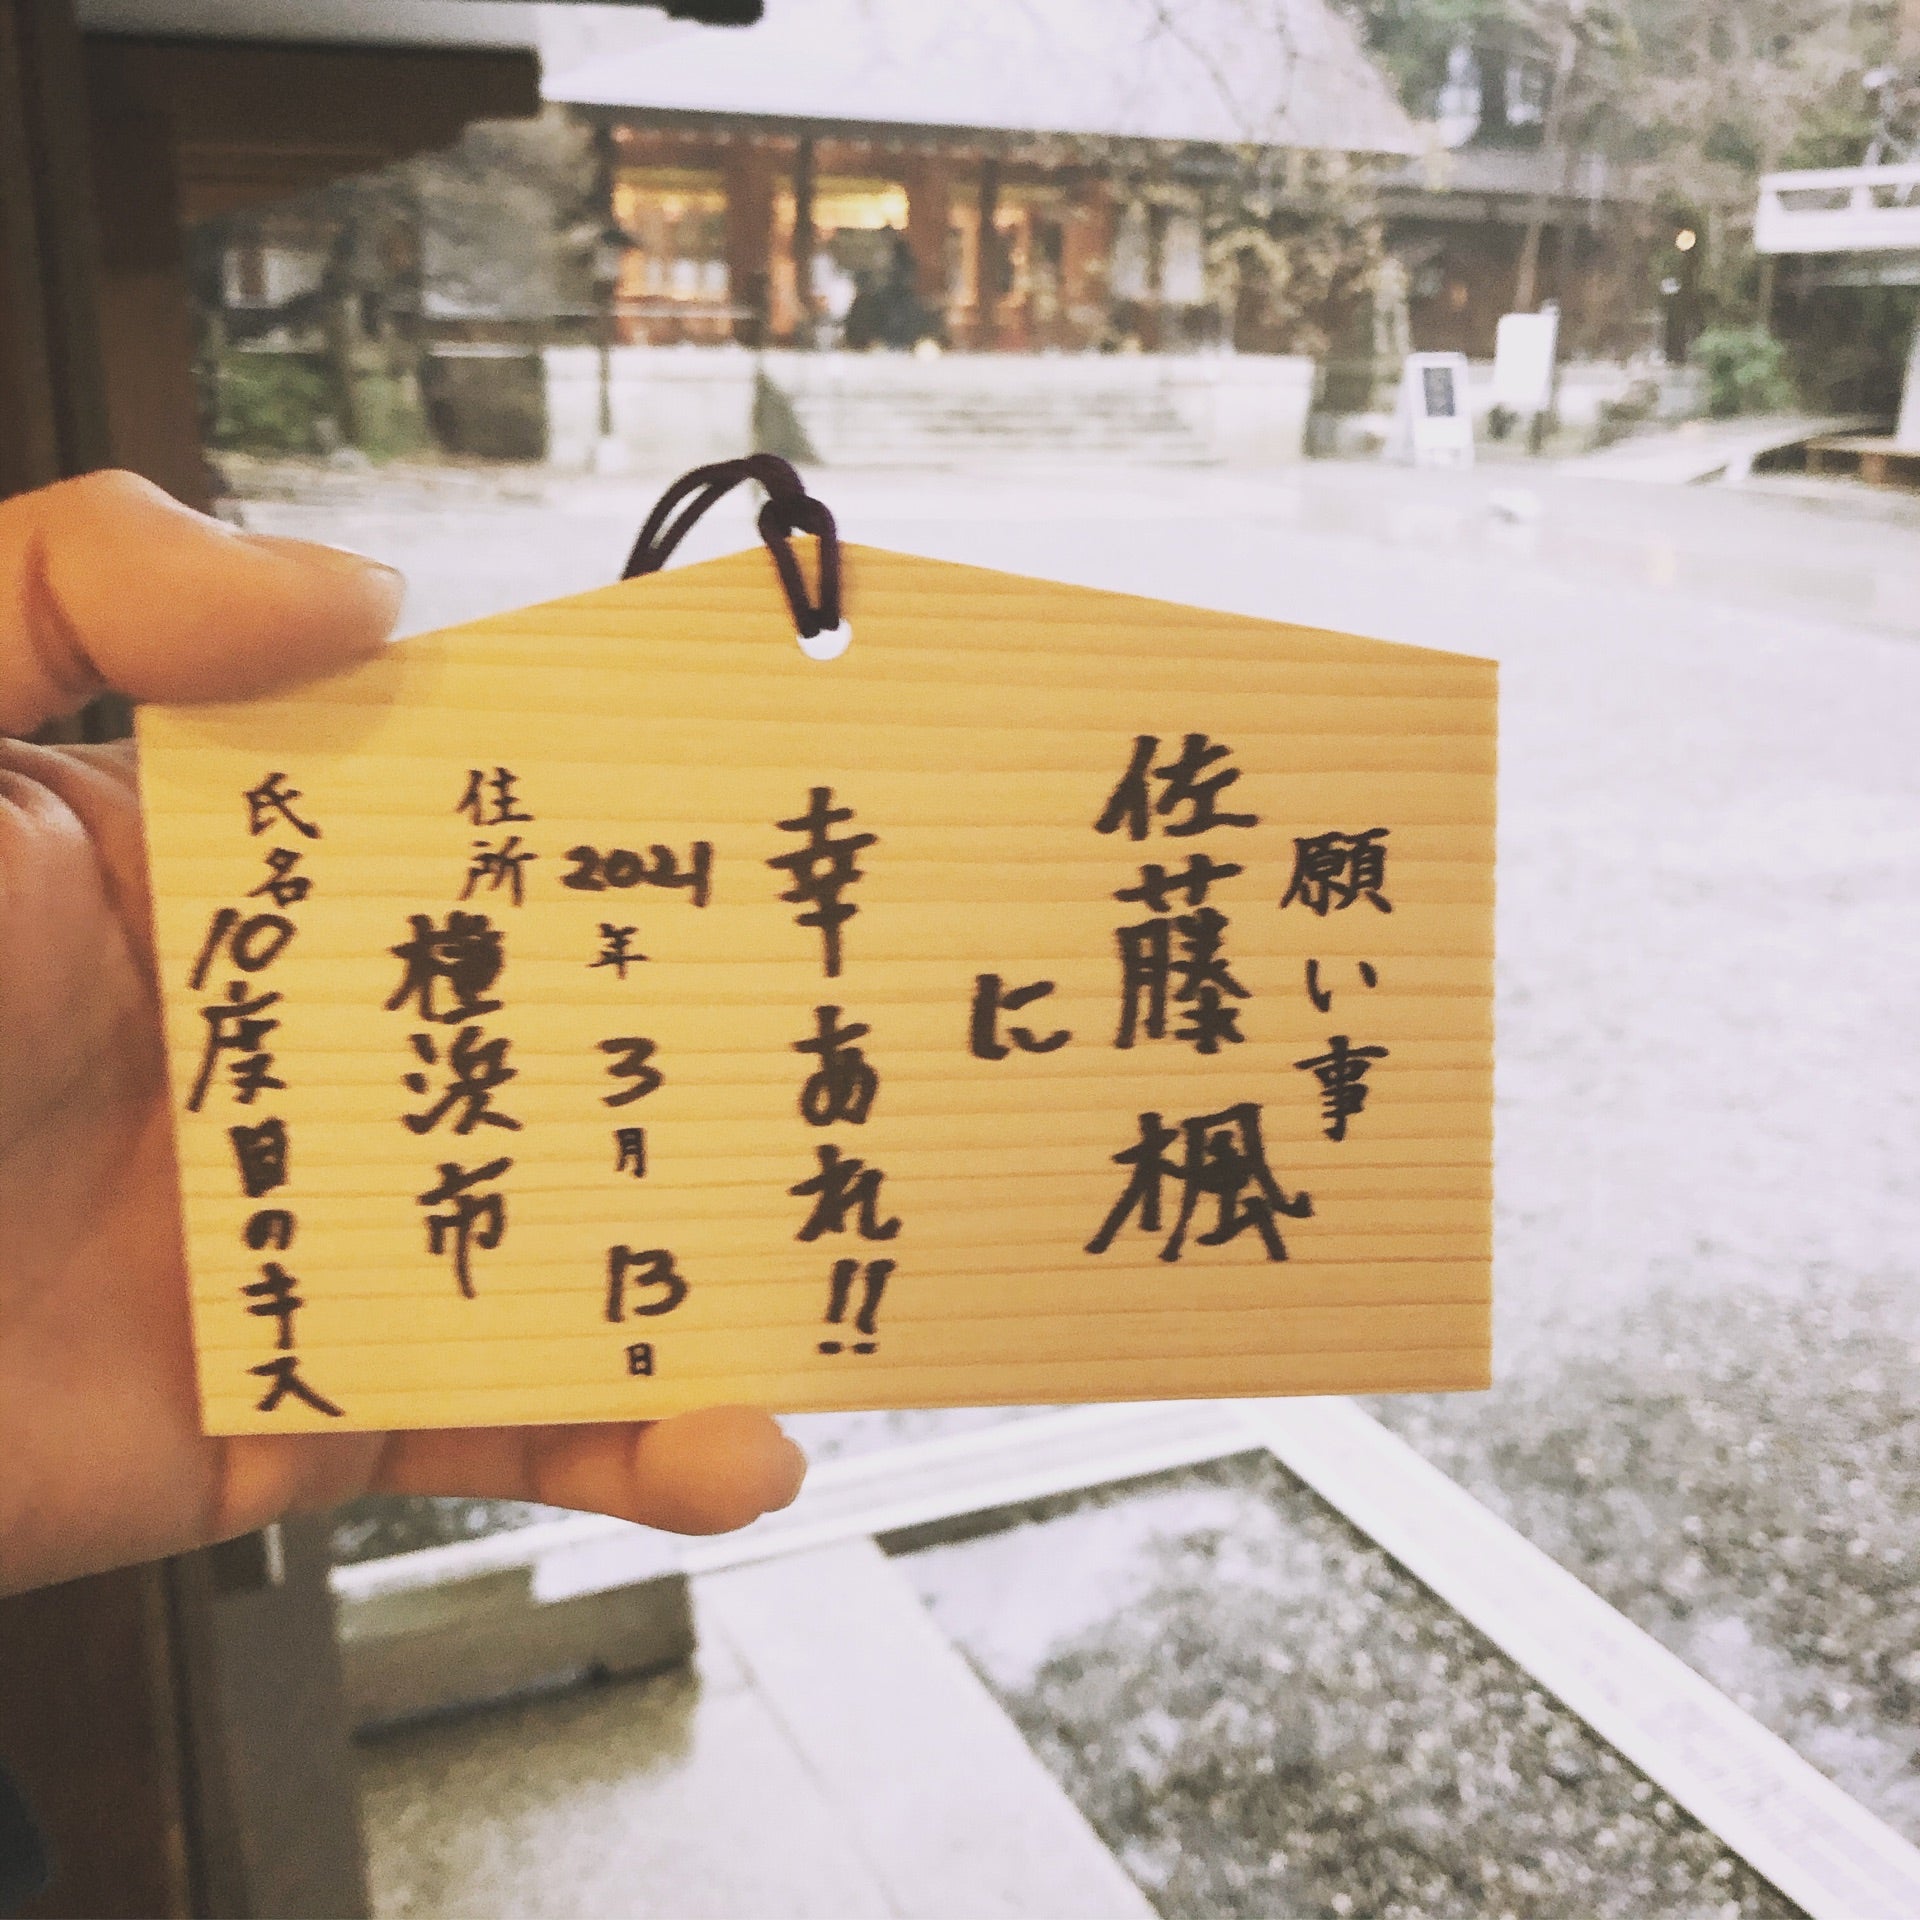 願い事
佐藤楓
に
幸あれ!!
2021年3月13日
住所
横浜市
氏名
10度目のキス